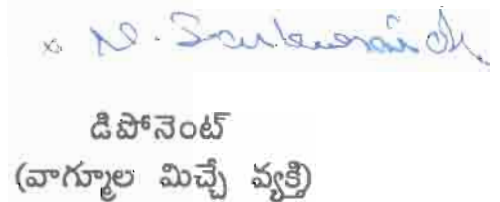 x N.
డిపోనెంట్
(వాగ్మూల మిచ్చే వ్యక్తి)